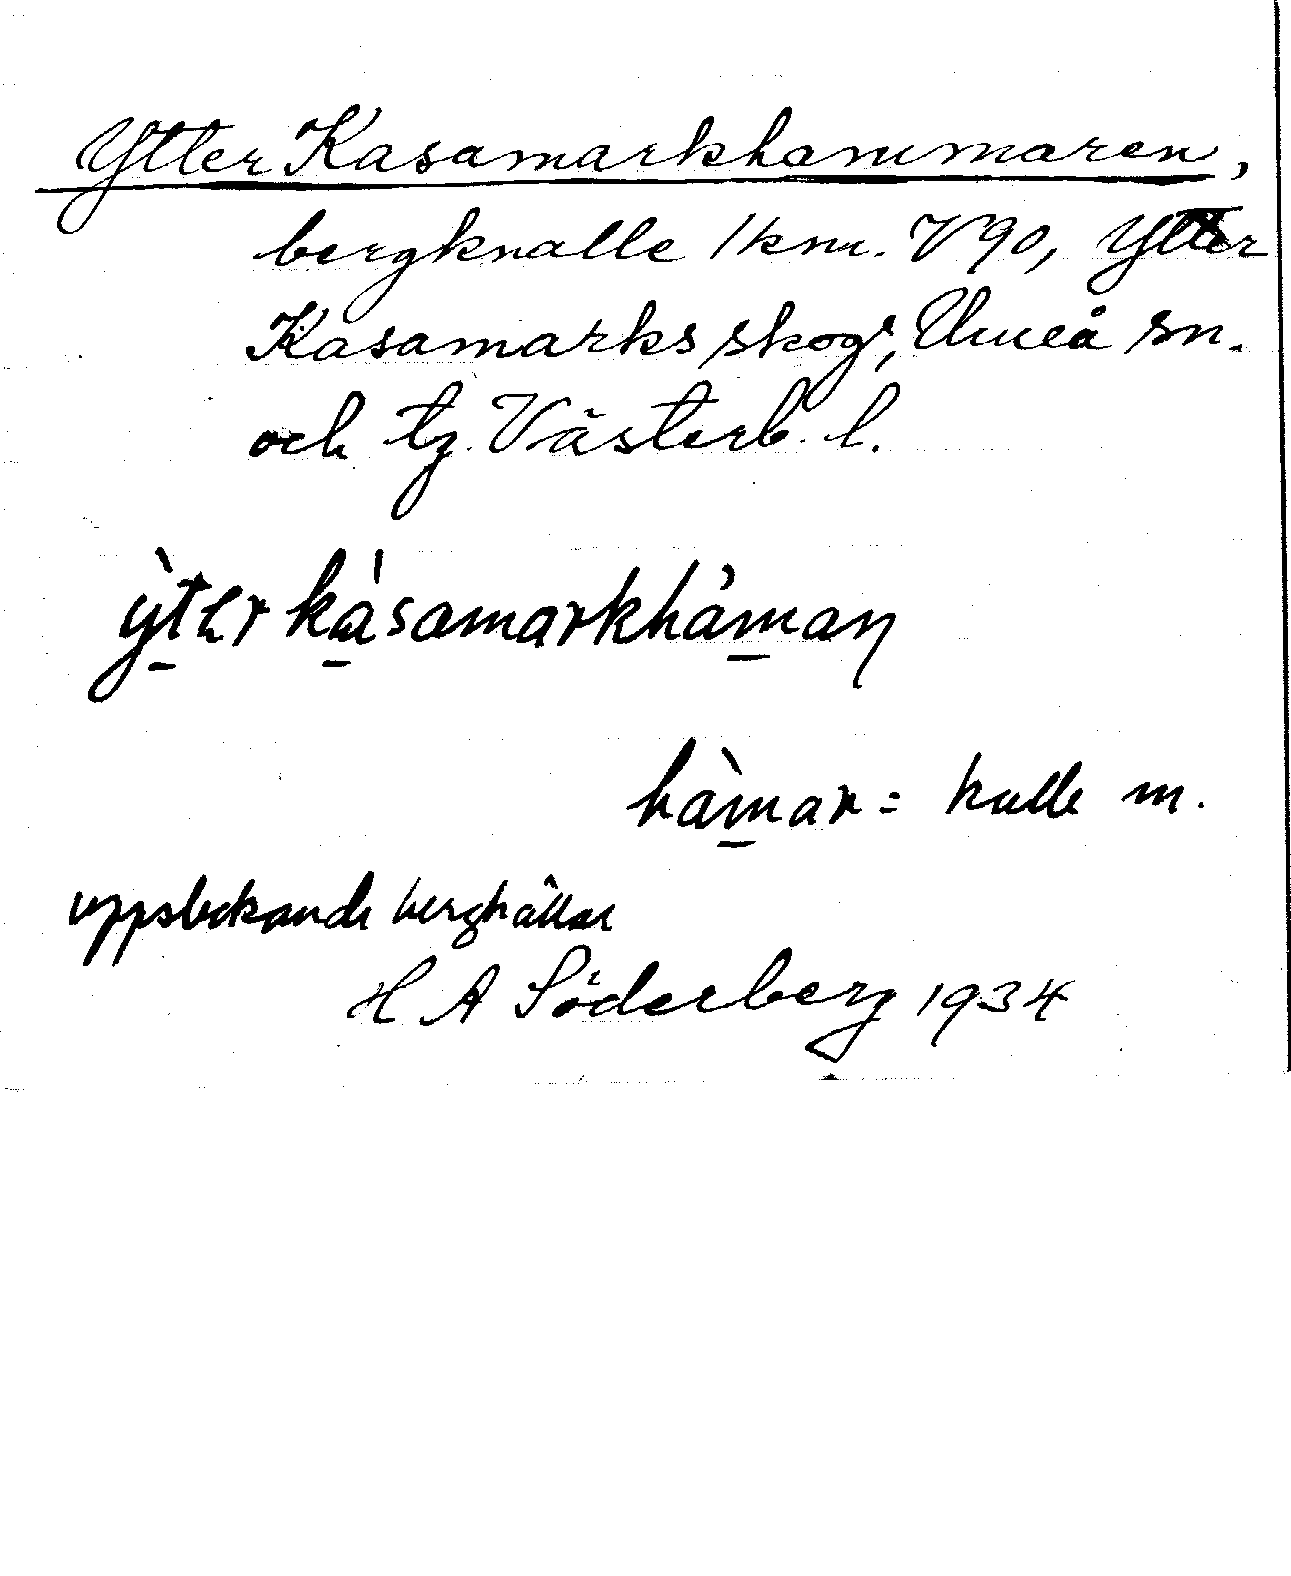 Ytter Kasamarkhammaren,
bergknalle 1 km. V 90, Ytter
Kasamarks skogs, Umeå sn.
och tg. Västerb. l.
ỳter kàsamarkhåman
hàmar = kulle m.
uppstickande berghällar
H A Söderberg 1934